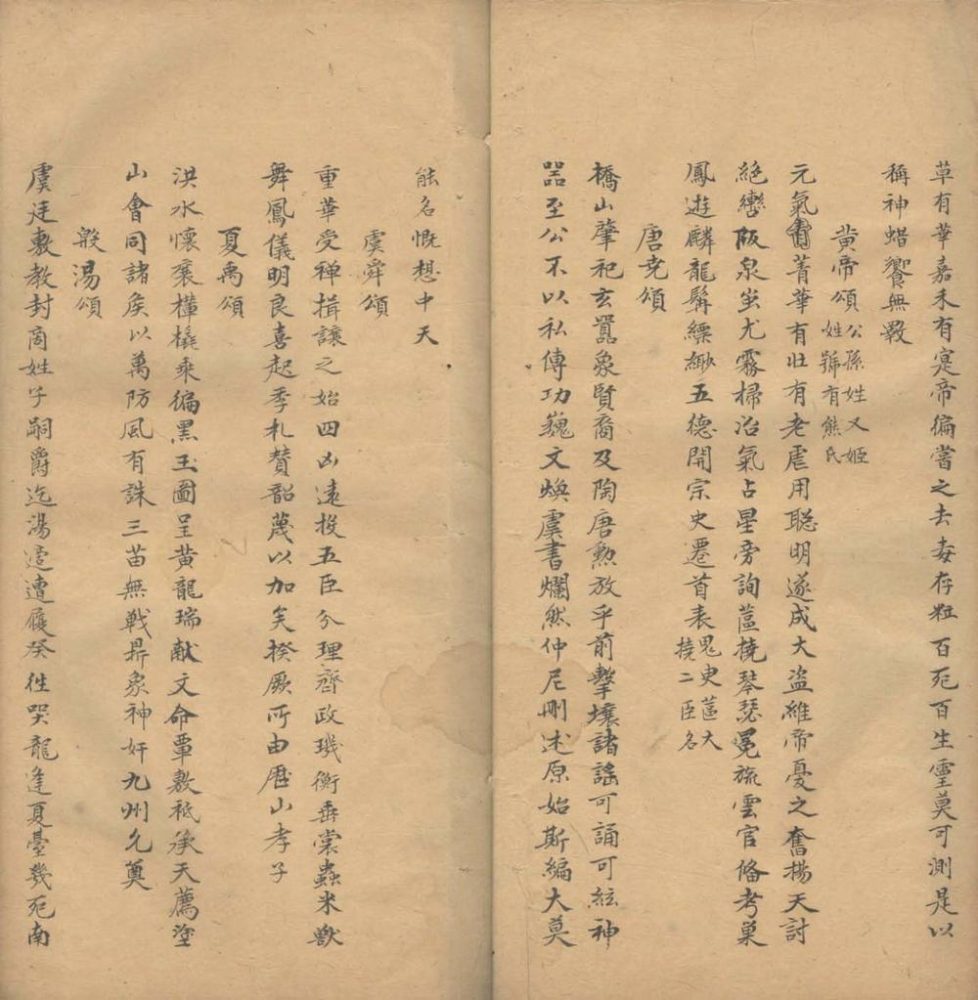 草有華嘉禾有寔帝徧嘗之去毒存粒百死百生靈莫可測是以
稱神蜡饗無斁
黄帝頌 公孫姓又姬姓號有熊氏
元氣胄菁華有壯有老虐用聡明遂成大盜維帝憂之奮揚天討
絶轡阪泉蚩尤霧掃冶氣占星旁詢蓲撓琴瑟冕旒雲官俻考巢
鳳遊麟龍髯縹緲五德開宗史遷首表 鬼史蓲大撓二臣名
唐尭頌
橋山肇祀玄囂象賢裔及陶唐勲放乎前擊壤諸謡可誦可絃神
噐至公不以私傳功巍文煥虞書爛然仲尼刪述原始斯編大莫
能名慨想中天
虞舜頌
重華受禅揖讓之始四凶遠投五臣分理齊政璣衡垂裳蟲米獸
舞鳳儀明良喜起季札賛韶蔑以加矣揆厥所由歷山孝子
夏禹頌
洪水懷襄檋橇乘徧黑玉圖呈黄龍瑞献文命覃敷祗承天薦塗
山會同諸矦以萬防風有誅三苗無戰鼎象神奸九州允奠
殷湯頌
虞廷敷教封商姓子嗣爵迄湯遭履癸徃哭龍逢夏臺幾死南